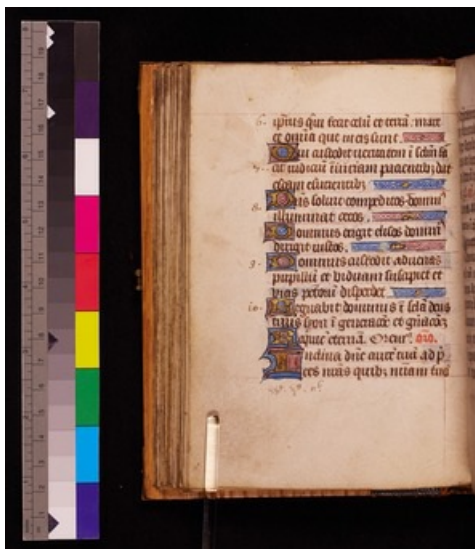 ipsius qui fecit celū et terrā. mare
et om̄ia que in eis sunt.
Qui custodit ueritatem ī sclm̄ fa
cit iudiciū iniuriam pacientibȝ dat
escam esurientibȝ
Dn̄s soluit compeditos dominꝰ
illuminat cecos.
Dominus erigit elisos dominꝰ
dirigit iustos.
Dominus custodit aduenas
pupillū et viduam suscipiet et
vias pctōrū disperdet
Regnabit dominus ī scla deus
tuus syon ī generacōe et gn̄acōȝ
Requiē eternā. Oremꝰ. oro.
Inclina dn̄e aurē tuā ad p̄
ces nr̄as quibȝ